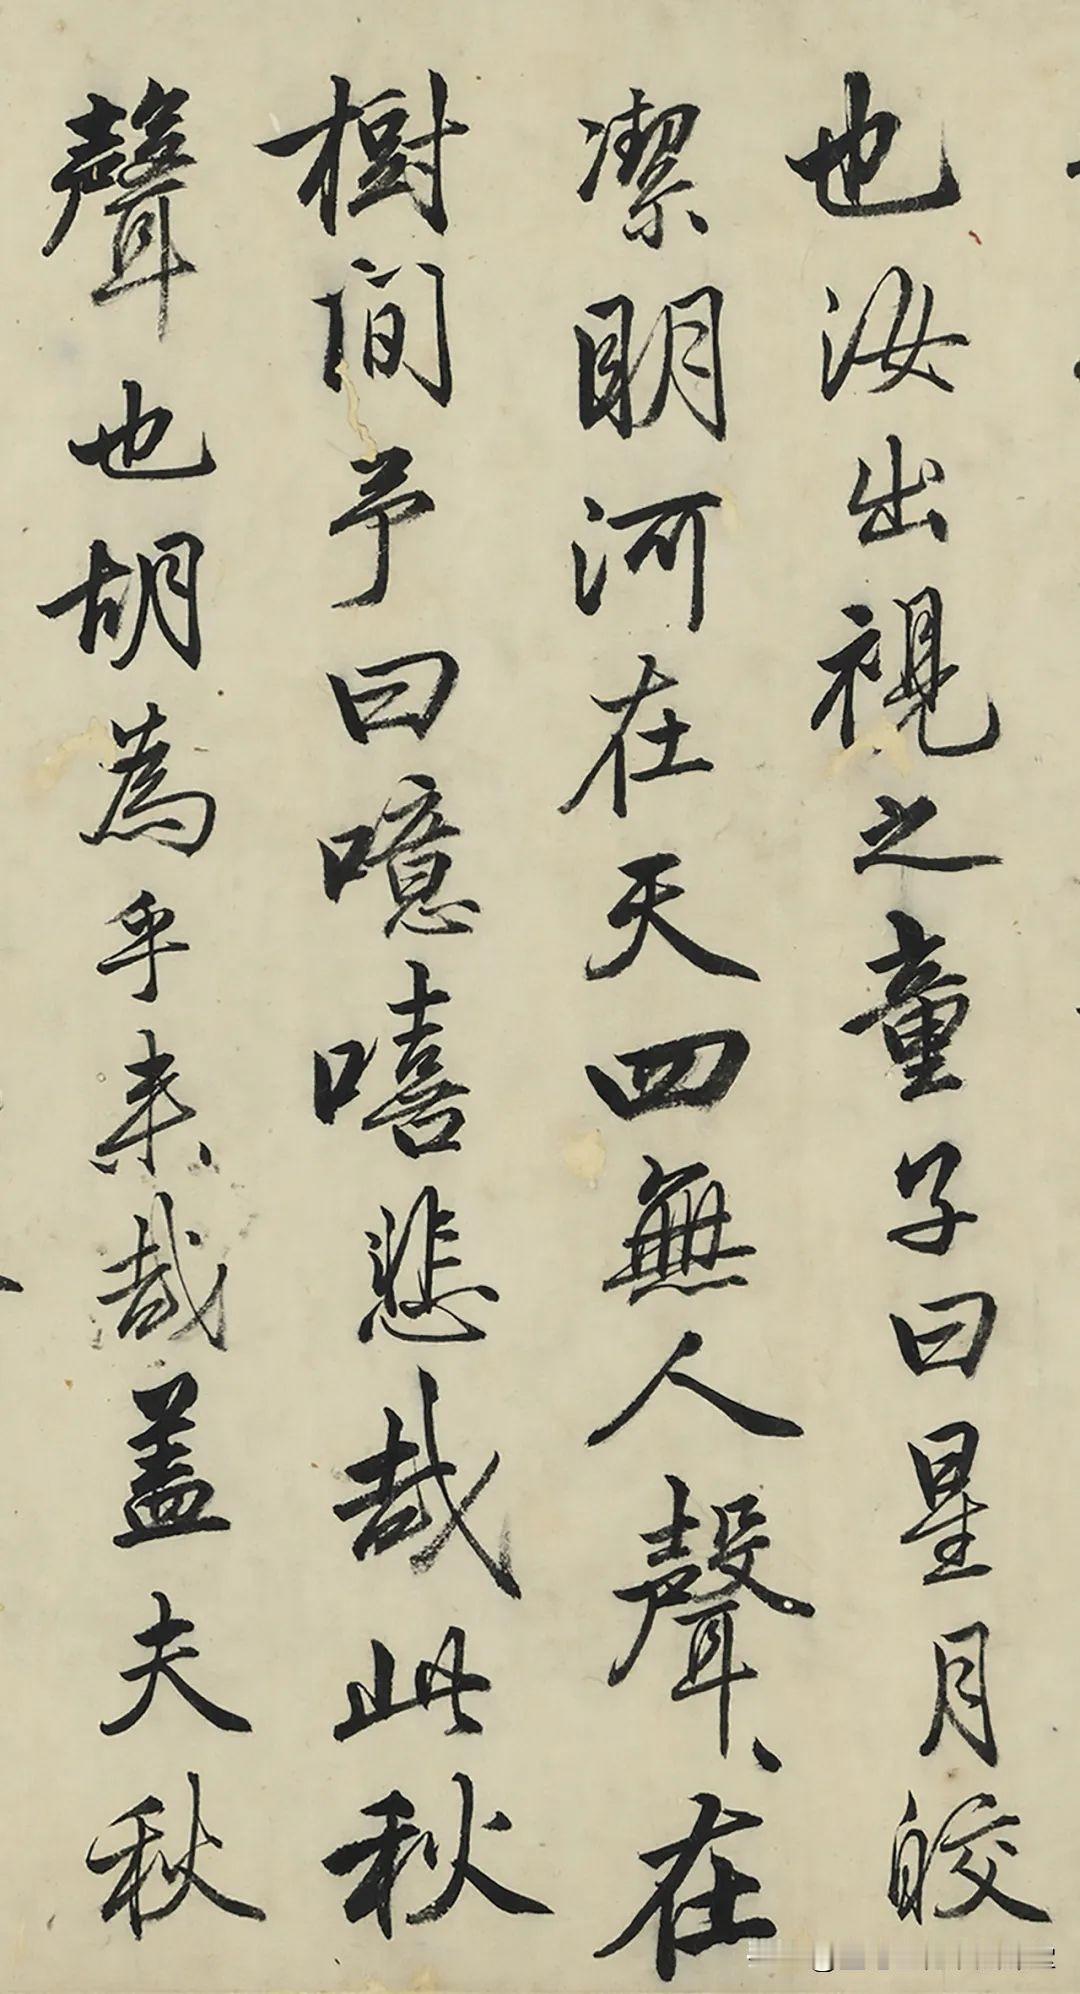 也汝出視之童子曰星月皎
潔明河在天四無人聲、在
樹間予曰噫嘻悲哉此秋
聲也胡為乎来哉盖夫秋